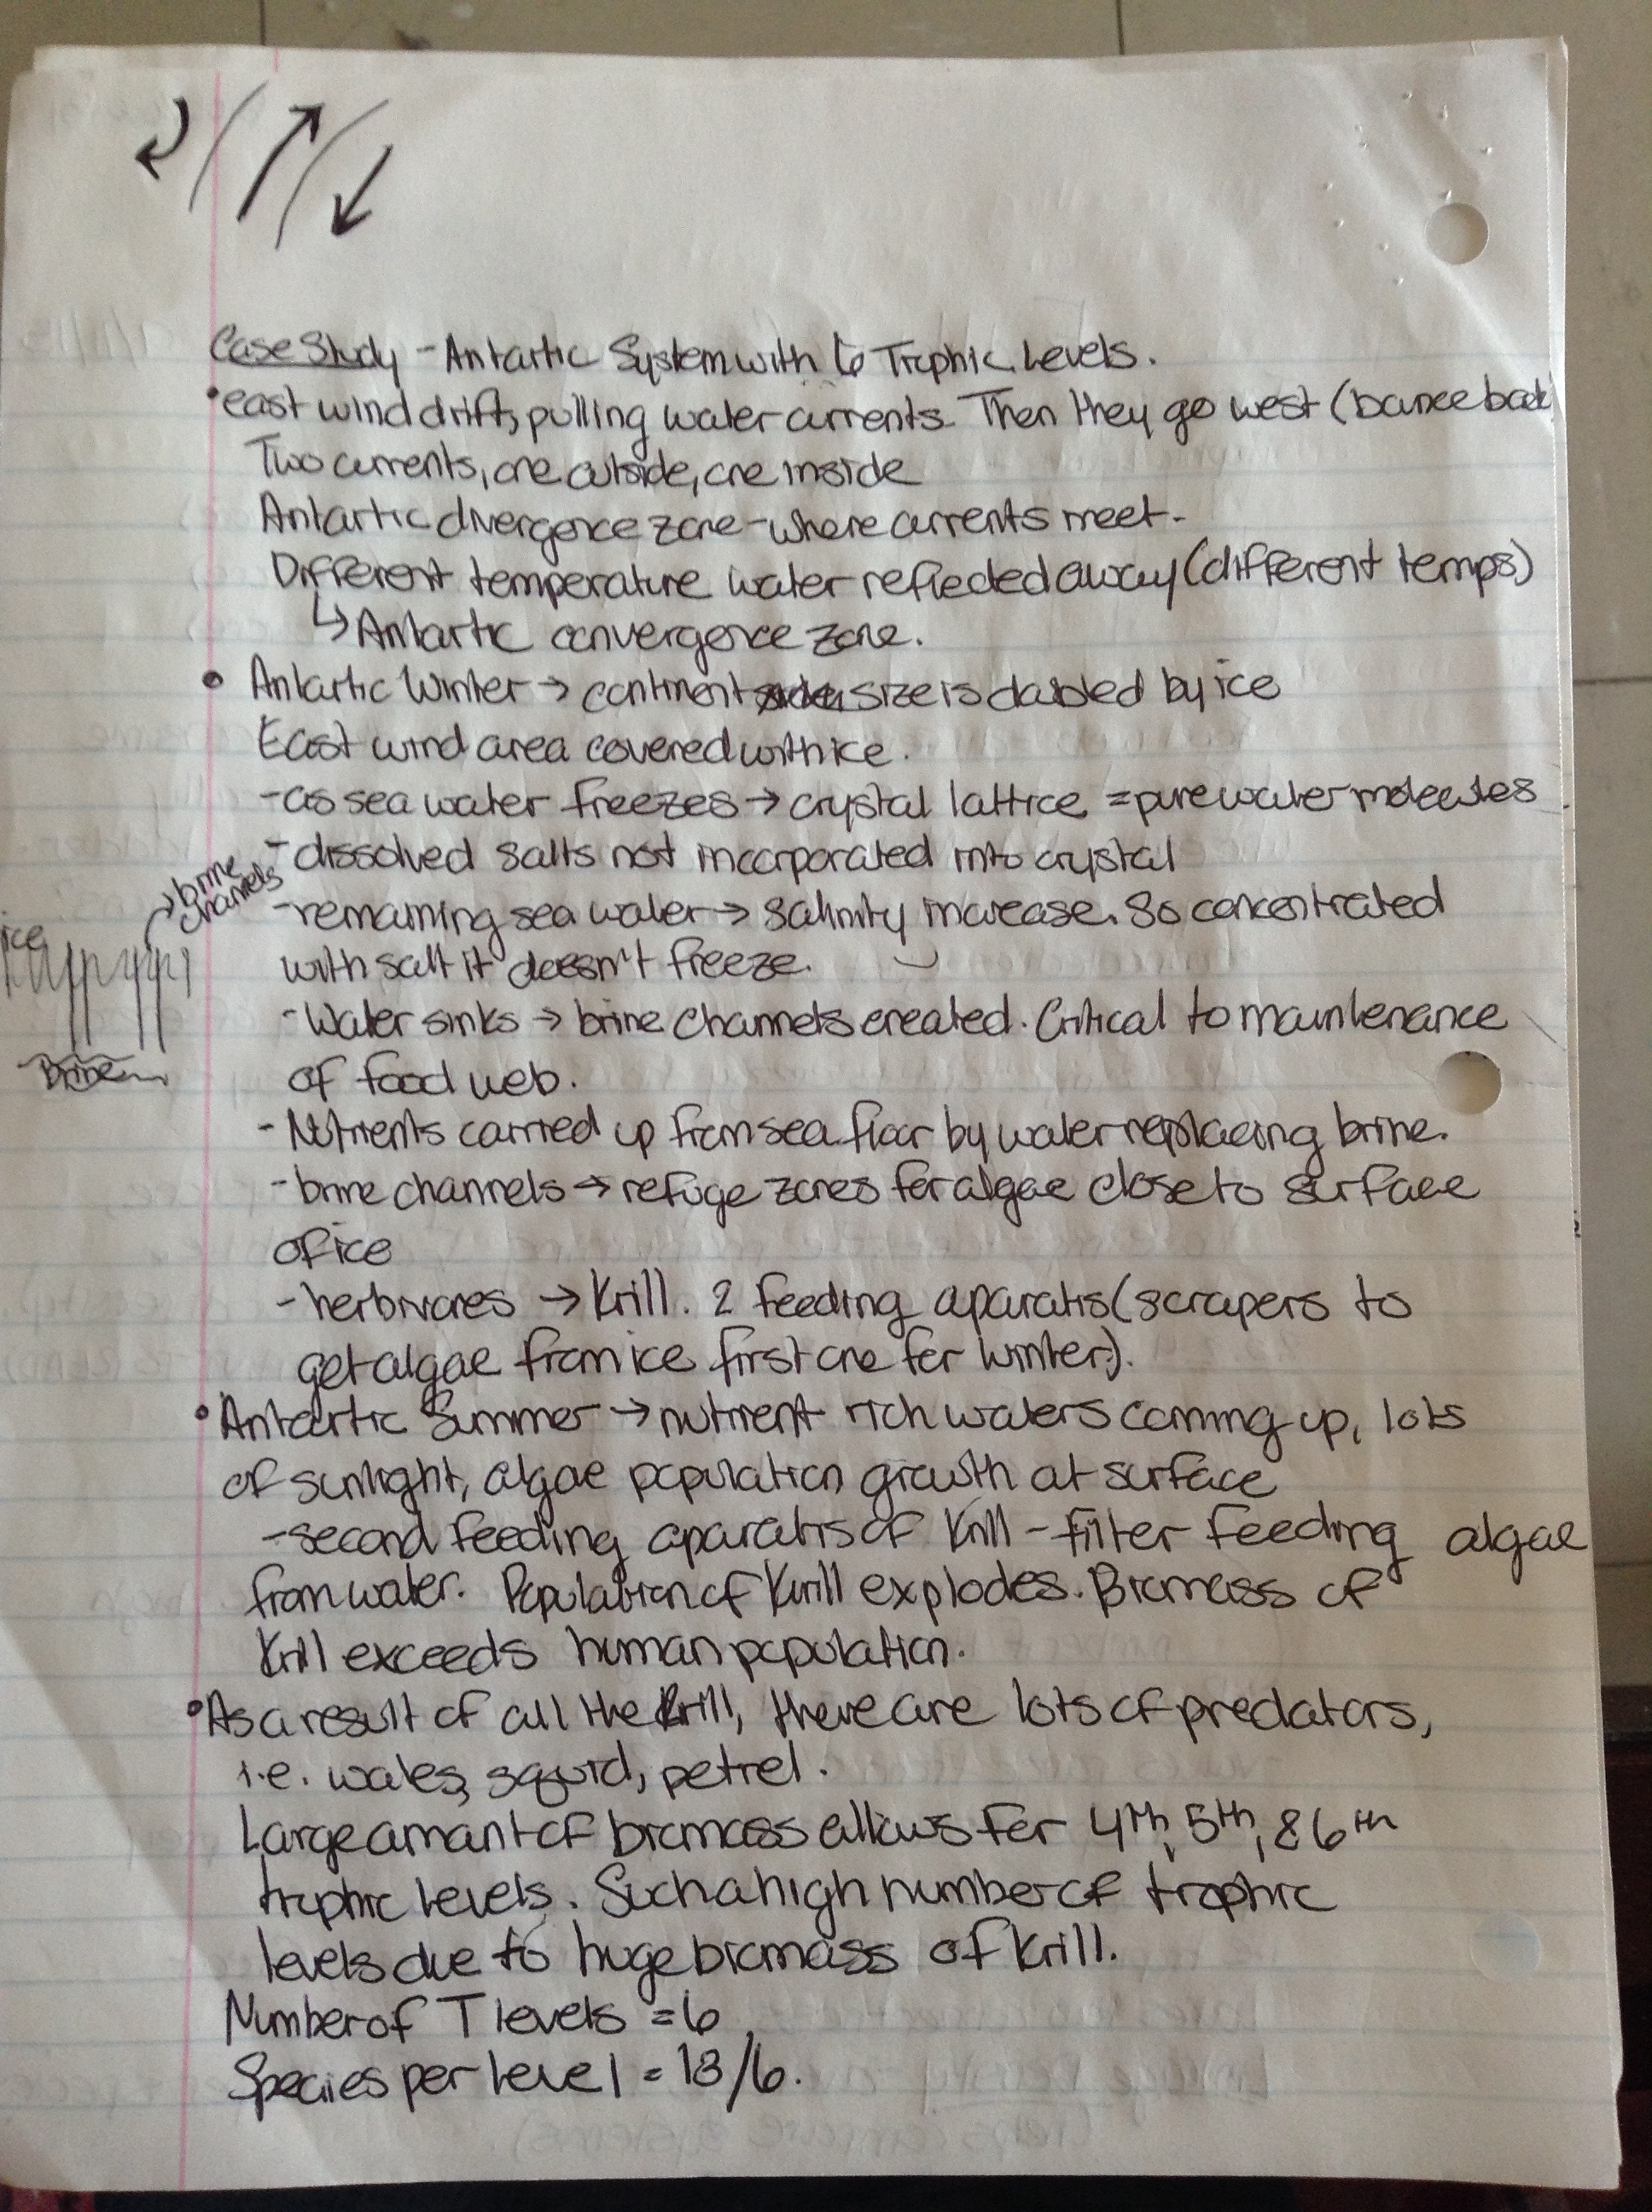 Case Study - Antartic System with 6 Trophic Levels.
• east wind drift, pulling water currents. Then they go west (bounce back
Two currents, one outside, one inside
Antartic divergence zone - where currents meet -
Different temperature water reflected away (different temps)
↳ Antartic convergence zone.
• Antartic Winter → continent size is doubled by ice
East wind area covered with ice.
- as sea water freezes → crystal lattice = pure water molecules
- dissolved salts not incorporated into crystal
→ brine
channels
- remaining sea water → salinity increase. So concentrated
ice
with salt it doesn't freeze.
- Water sinks → brine channels created. Critical to maintenance
Brine
of food web.
- Nutrients carried up from sea floor by water replacing brine.
- brine channels → refuge zones for algae close to surface
of ice
- herbivores → Krill. 2 feeding aparatis (scrapers to
get algae from ice first one for winter).
• Antartic Summer → nutrient rich waters coming up, lots
of sunlight, algae population growth at surface
- second feeding aparatis of Krill - filter feeding algae
from water. Population of Krill explodes. Biomass of
Krill exceeds human population.
• As a result of all the Krill, there are lots of predators,
i.e. wales, squid, petrel.
Large amant of biomass allows for 4th, 5th, & 6th
trophic levels. Such a high number of trophic
levels due to huge biomass of Krill.
Number of T levels = 6
Species per level = 18/6.